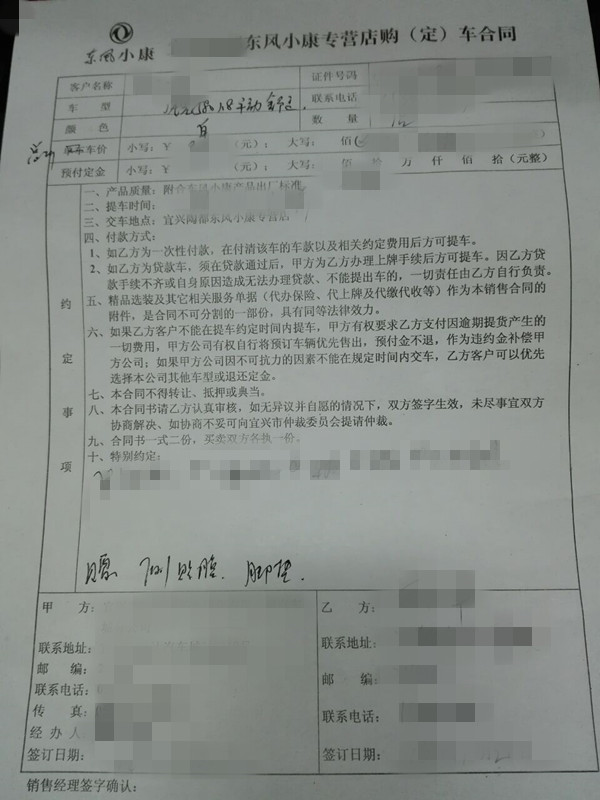 东风小康 东风小康专营店购（定）车合同
客户名称 证件号码
车型 手动 联系电话
颜色 白 数量
车价 小写：￥ （元）； 大写： 佰（
预付定金 小写：￥ （元）； 大写： 佰 拾 万 仟 佰 拾（元）整
约定事项
一、产品质量：附合东风小康产品出厂标准。
二、提车时间：
三、交车地点：宜兴陶都东风小康专营店
四、付款方式：
1、如乙方为一次性付款，在付清该车的车款以及相关约定费用后方可提车。
2、如乙方为贷款车，须在贷款通过后，甲方为乙方办理上牌手续后方可提车。因乙方贷
款手续不齐或自身原因造成无法办理贷款、不能提出车的，一切责任由乙方自行负责。
五、精品选装及其它相关服务单据（代办保险、代上牌及代缴代收等）作为本销售合同的
附件，是合同不可分割的一部份，具有同等法律效力。
六、如果乙方客户不能在提车约定时间内提车，甲方有权要求乙方支付因逾期提货产生的
一切费用，甲方公司有权自行将预订车辆优先售出，预付金不退，作为违约金补偿甲
方公司；如果甲方公司因不可抗力的因素不能在规定时间内交车，乙方客户可以优先
选择本公司其他车型或退还定金。
七、本合同不得转让、抵押或典当。
八、本合同书请乙方认真审核，如无异议并自愿的情况下，双方签字生效，未尽事宜双方
协商解决、如协商不妥可向宜兴市仲裁委员会提请仲裁。
九、合同书一式二份，买卖双方各执一份。
十、特别约定：
贴膜 脚垫
甲 方： 乙 方：
联系地址： 联系地址：
邮 编： 邮 编：
联系电话： 联系电话：
传 真：
经 办 人
签订日期： 签订日期：
销售经理签字确认：